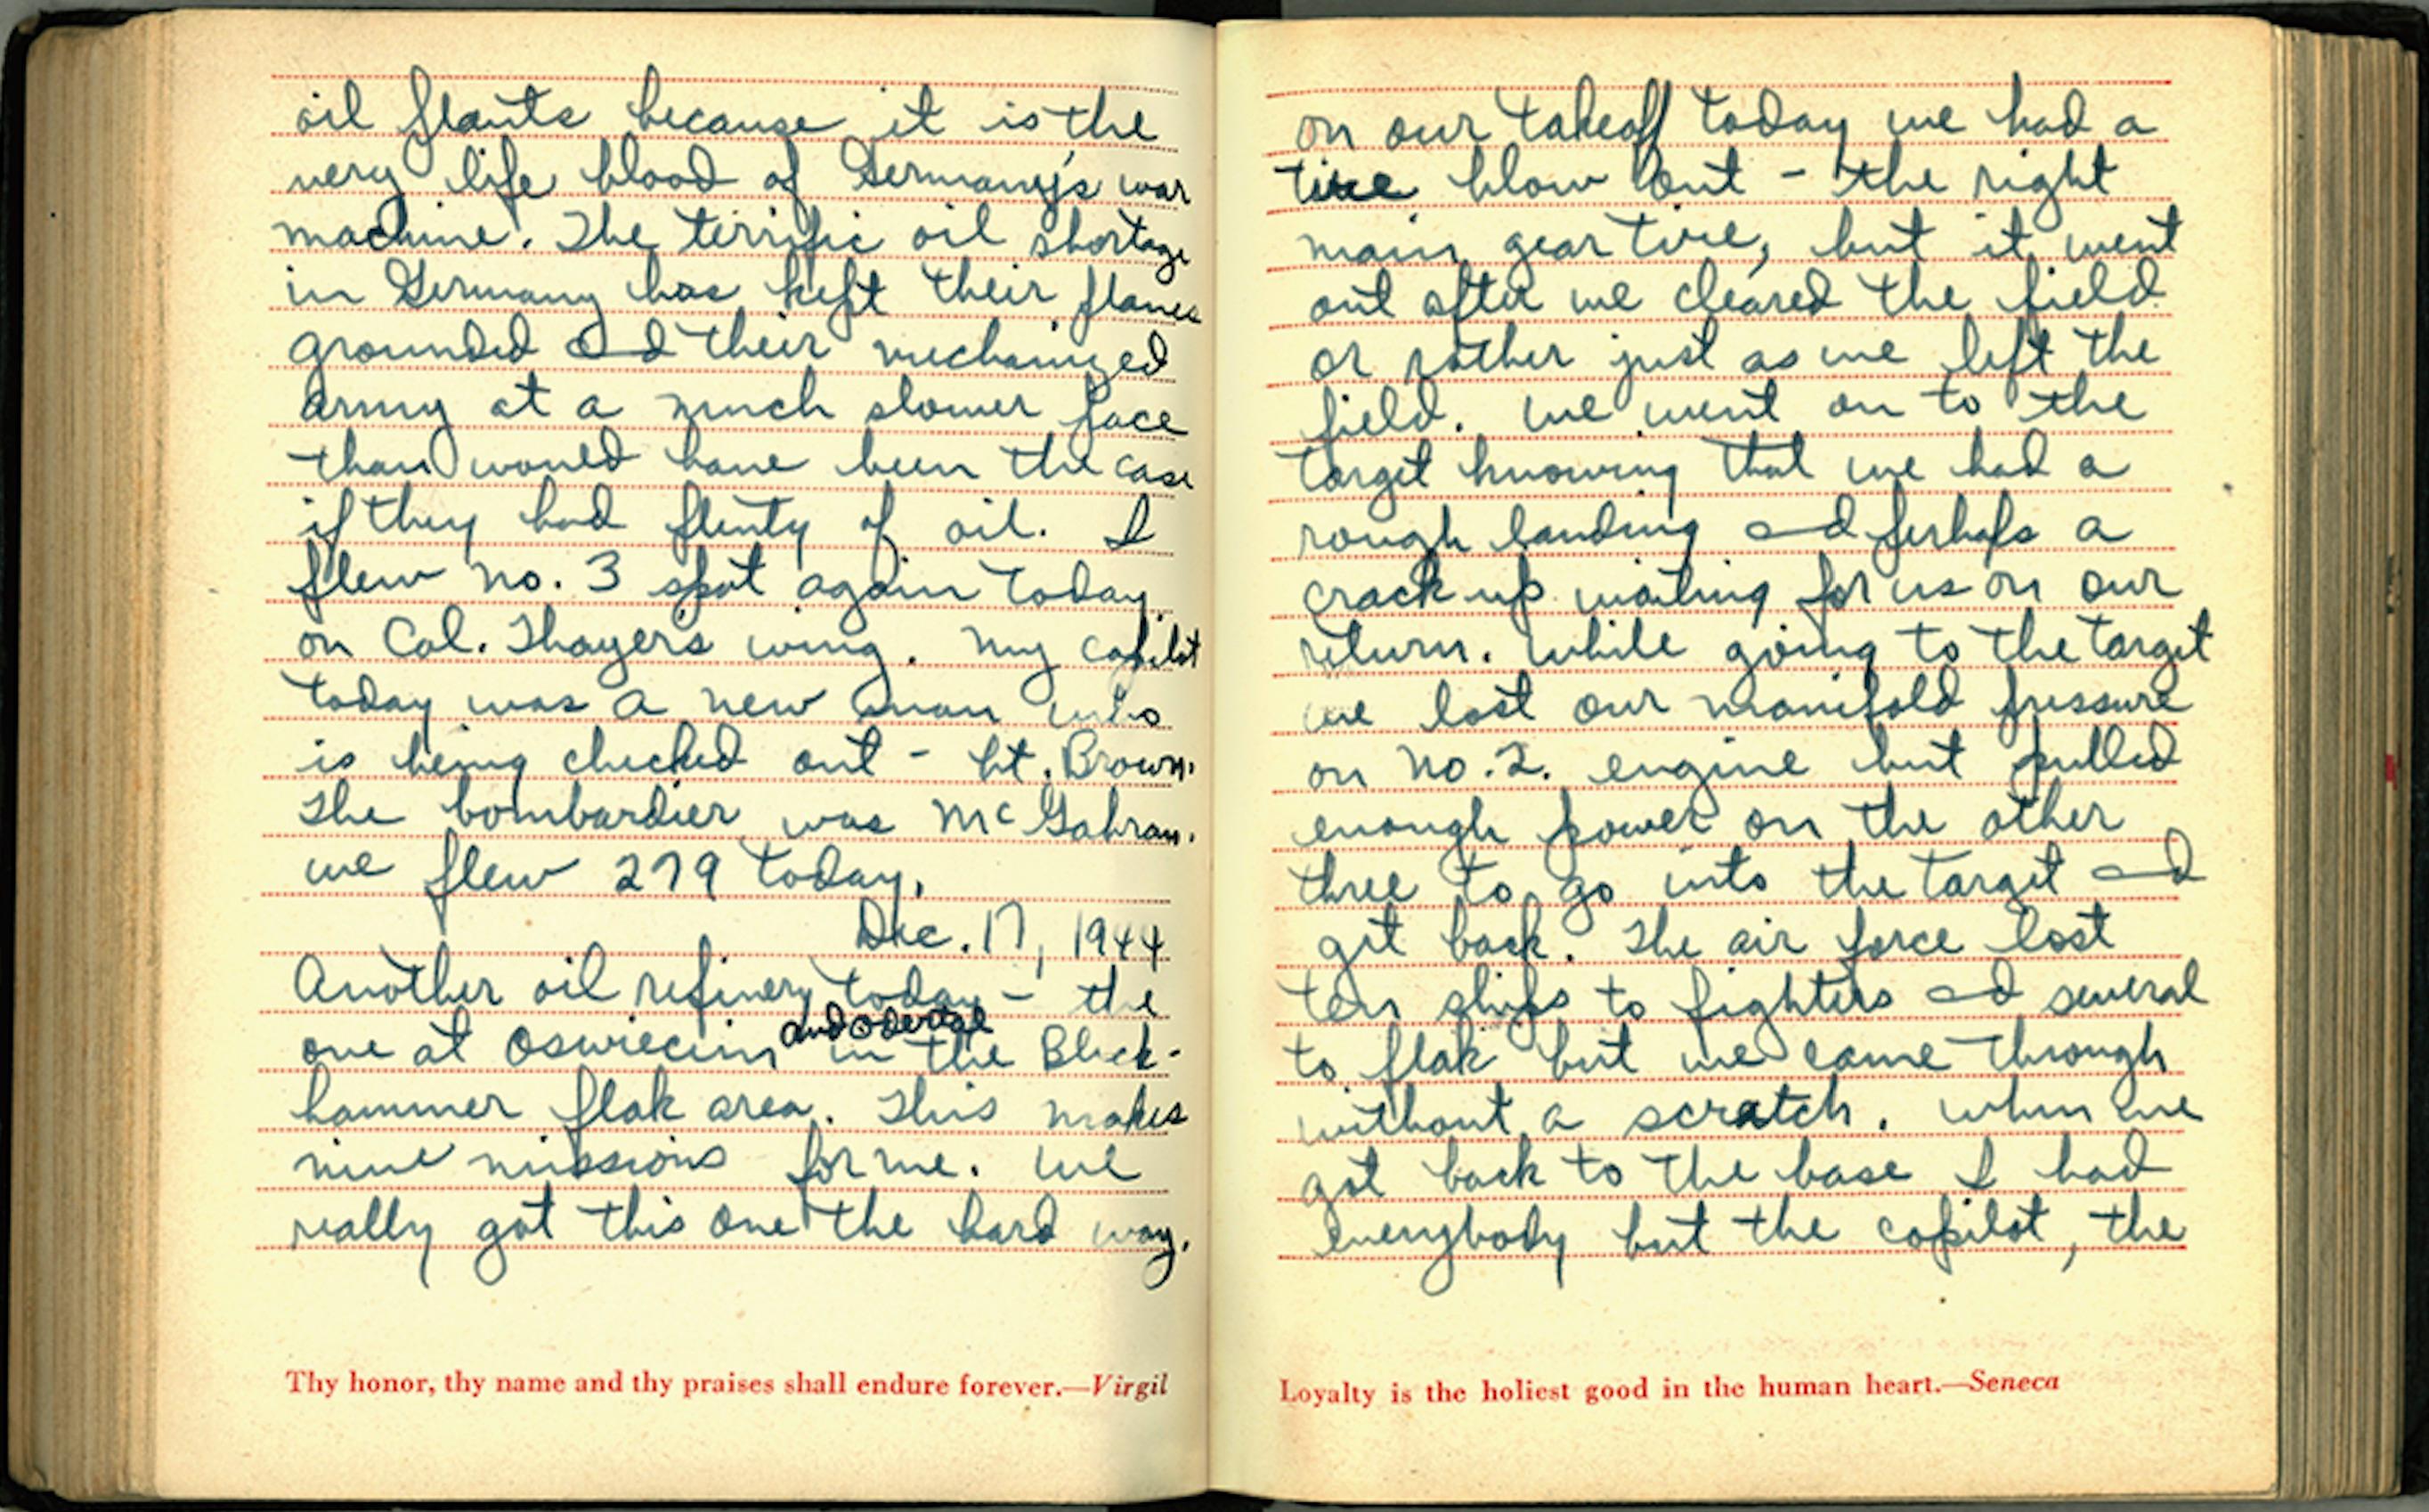 oil plants because it is the
very life blood of Germany's war
machine. The terrific oil shortage
in Germany has kept their planes
grounded and their mechanized
army at a much slower pace
than would have been the case
if they had plenty of oil. I
flew no. 3 spot again today
on Col. Thayers wing. My copilot
today was a new man who
is being checked out - Lt. Brown.
The bombardier was McGahran.
we flew 279 today.
Dec. 17, 1944
Another oil refinery today - the
and odertal
one at Oswiecim in the Bleck-
hammer flak area. This makes
nine missions for me. We
really got this one the hard way.
Thy honor, thy name and thy praises shall endure forever.—Virgil
on our takeoff today we had a
tire blow out - the right
main gear tire, but it went
out after we cleared the field
or rather just as we left the
field. We went on to the
target knowing that we had a
rough landing and perhaps a
crack up waiting for us on our
return. While going to the target
we lost our manifold pressure
on no. 2. engine but pulled
enough power on the other
three to go into the target and
get back. The air force lost
ten ships to fighters and several
to flak but we came through
without a scratch. When we
got back to the base I had
everybody but the copilot, the
Loyalty is the holiest good in the human heart.—Seneca